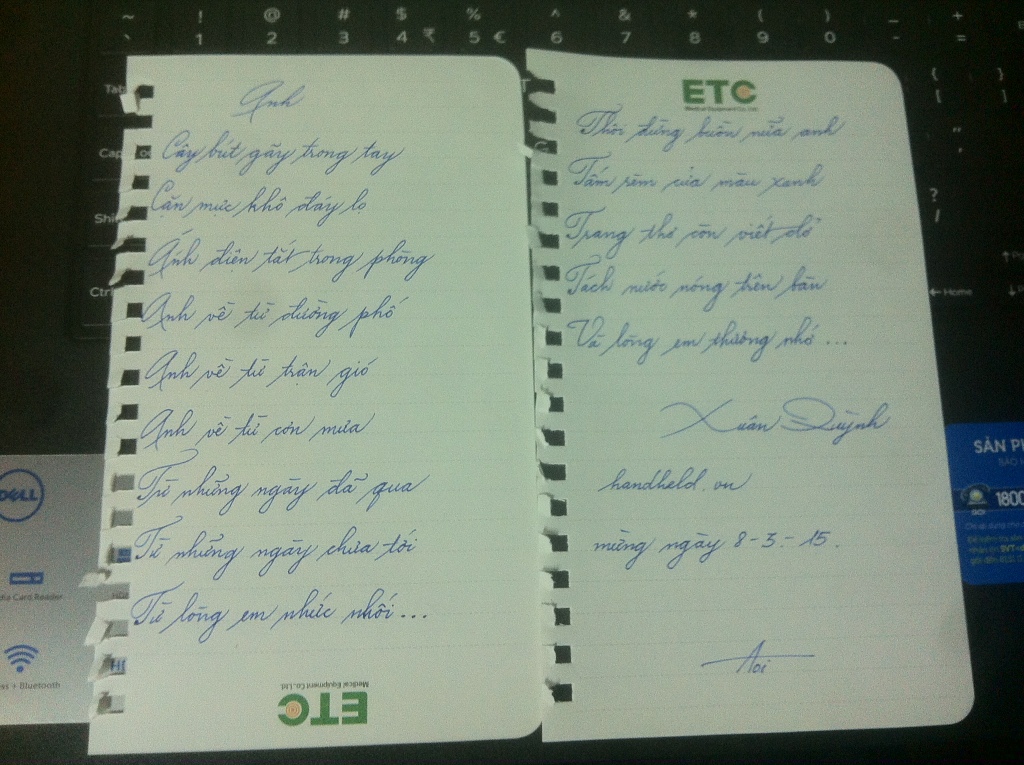 Anh
Cây bút gãy trong tay
Cặn mực khô đáy lọ
Ánh điện tắt trong phòng
Anh về từ đường phố
Anh về từ trận gió
Anh về từ cơn mưa
Từ những ngày đã qua
Từ những ngày chưa tới
Từ lòng em nhức nhối...
ETC
Medical Equipment Co., Ltd.
ETC
Medical Equipment Co., Ltd.
Thôi đừng buồn nữa anh
Tấm rèm cửa màu xanh
Trang thơ còn viết dở
Tách nước nóng trên bàn
Và lòng em thương nhớ...
Xuân Quỳnh
handheld.vn
mừng ngày 8-3-15.
Aoi
~ ! @ # $ % ^ & * ( ) _ +
` 1 2 3 4 ₹ 5 € 6 7 8 9 0 - =
Tab
Ctrl
{ }
[ ]
"
'
?
/
Home
DELL
Media Card Reader
+ Bluetooth
SẢN PH
1800